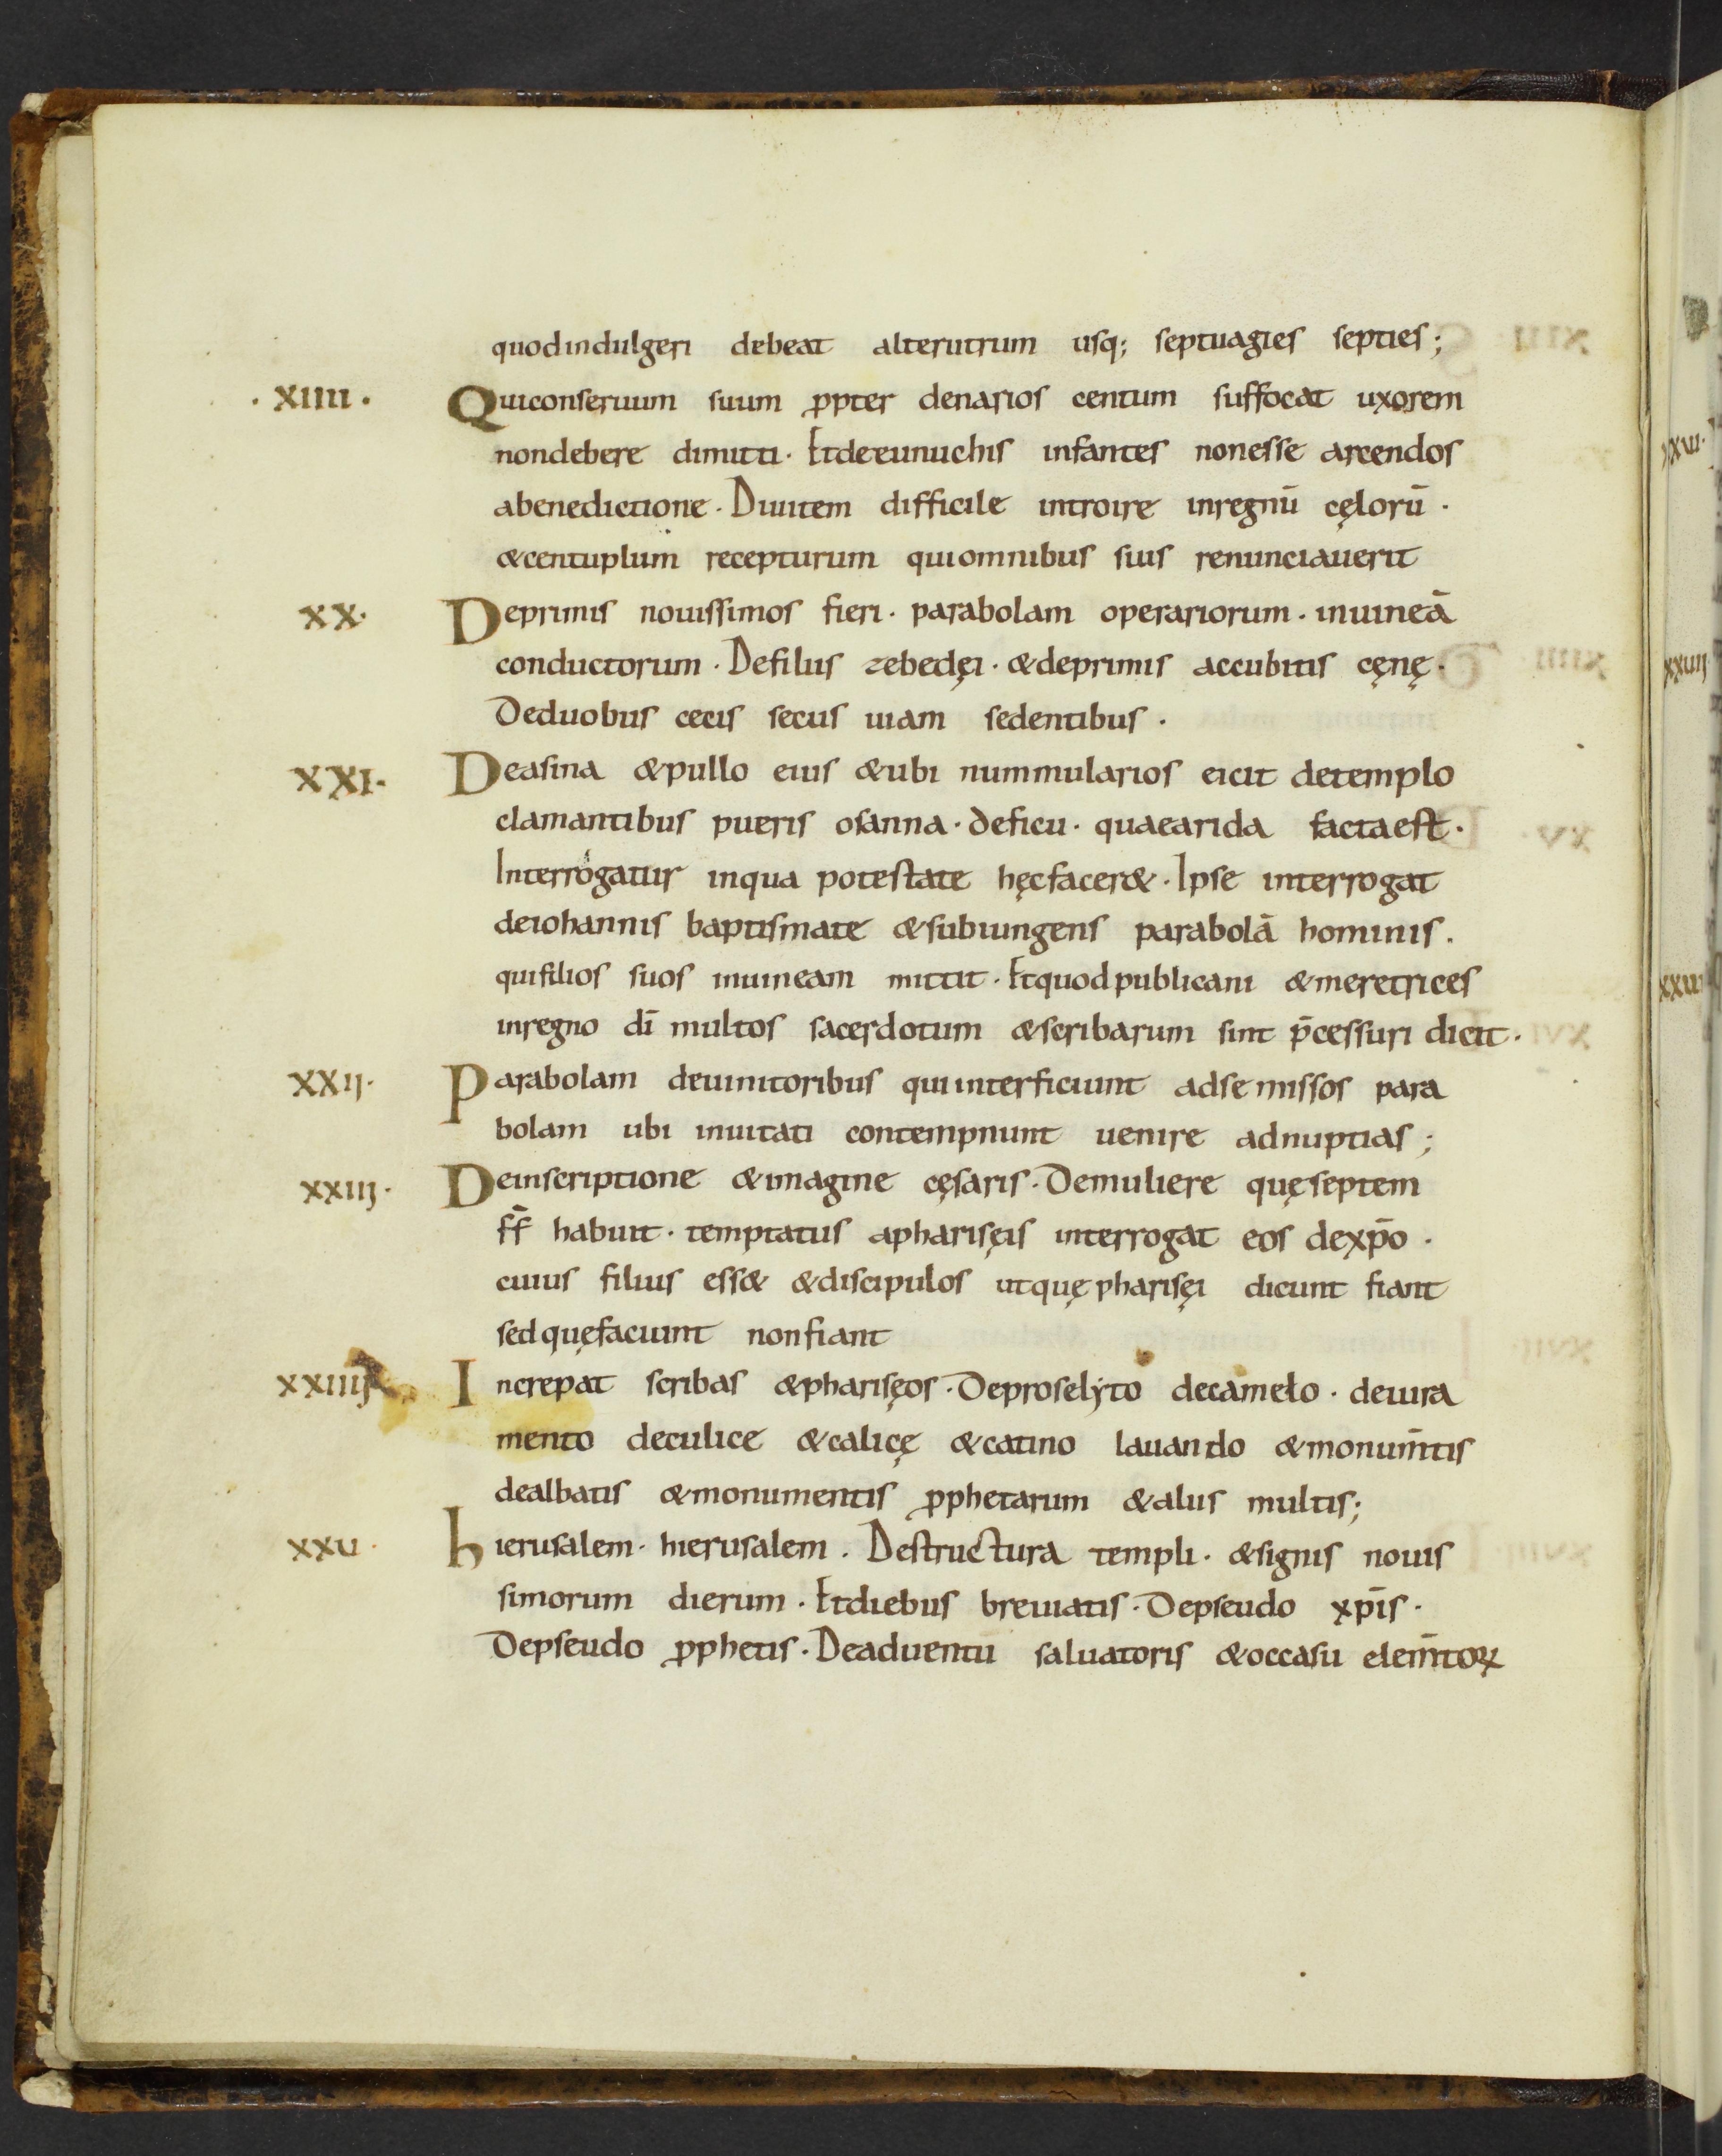 quodindulgeri debeat alterutrum usq; septuagies septies;
·XIIII· Quiconseruum suum ꝓpter denarios centum suffocat uxorem
nondebere dimitti· Etdeeunuchis infantes nonesse arcendos
abenedictione· Diuitem difficile introire inregnū cęlorū·
&centuplum recepturum quiomnibus suis renunciauerit
XX· Deprimis nouissimos fieri· parabolam operariorum· inuineā
conductorum· Defiliis zebedęi· &deprimis accubitis cęnę·
Deduobus cecis secus uiam sedentibus·
XXI· Deasina &pullo eius &ubi nummularios eicit detemplo
clamantibus pueris osanna· deficu· quaearida factaest·
Interrogatur inqua potestate hęcfacer&· Ipse interrogat
deiohannis baptismate &subiungens parabolā hominis·
quifilios suos inuineam mittit· Etquodpublicani &meretrices
inregno dī multos sacerdotum &scribarum sint p̄cessuri dicit·
XXIJ· Parabolam deuinitoribus quiinterficiunt adse missos para
bolam ubi inuitati contempnunt uenire adnuptias;
XXIIJ· Deinscriptione &imagine cęsaris· Demuliere quęseptem
ff̄ habuit· temptatus apharisęis interrogat eos dexp̄o·
cuius filius ess& &discipulos utquępharisęi dicunt fiant
sedquęfaciunt nonfiant
XXIIIJ Increpat scribas &pharisęos· Deproselẏto decamelo· deiura
mento deculice &calicę &catino lauando &monum̄tis
dealbatis &monumentis ꝓphetarum &aliis multis;
XXU· hierusalem· hierusalem· Destructura templi· &signis nouis
simorum dierum· Etdiebus breuiatis· Depseudo xp̄is·
Depseudo ꝓphetis· Deaduentu saluatoris &occasu elem̄toꝝ